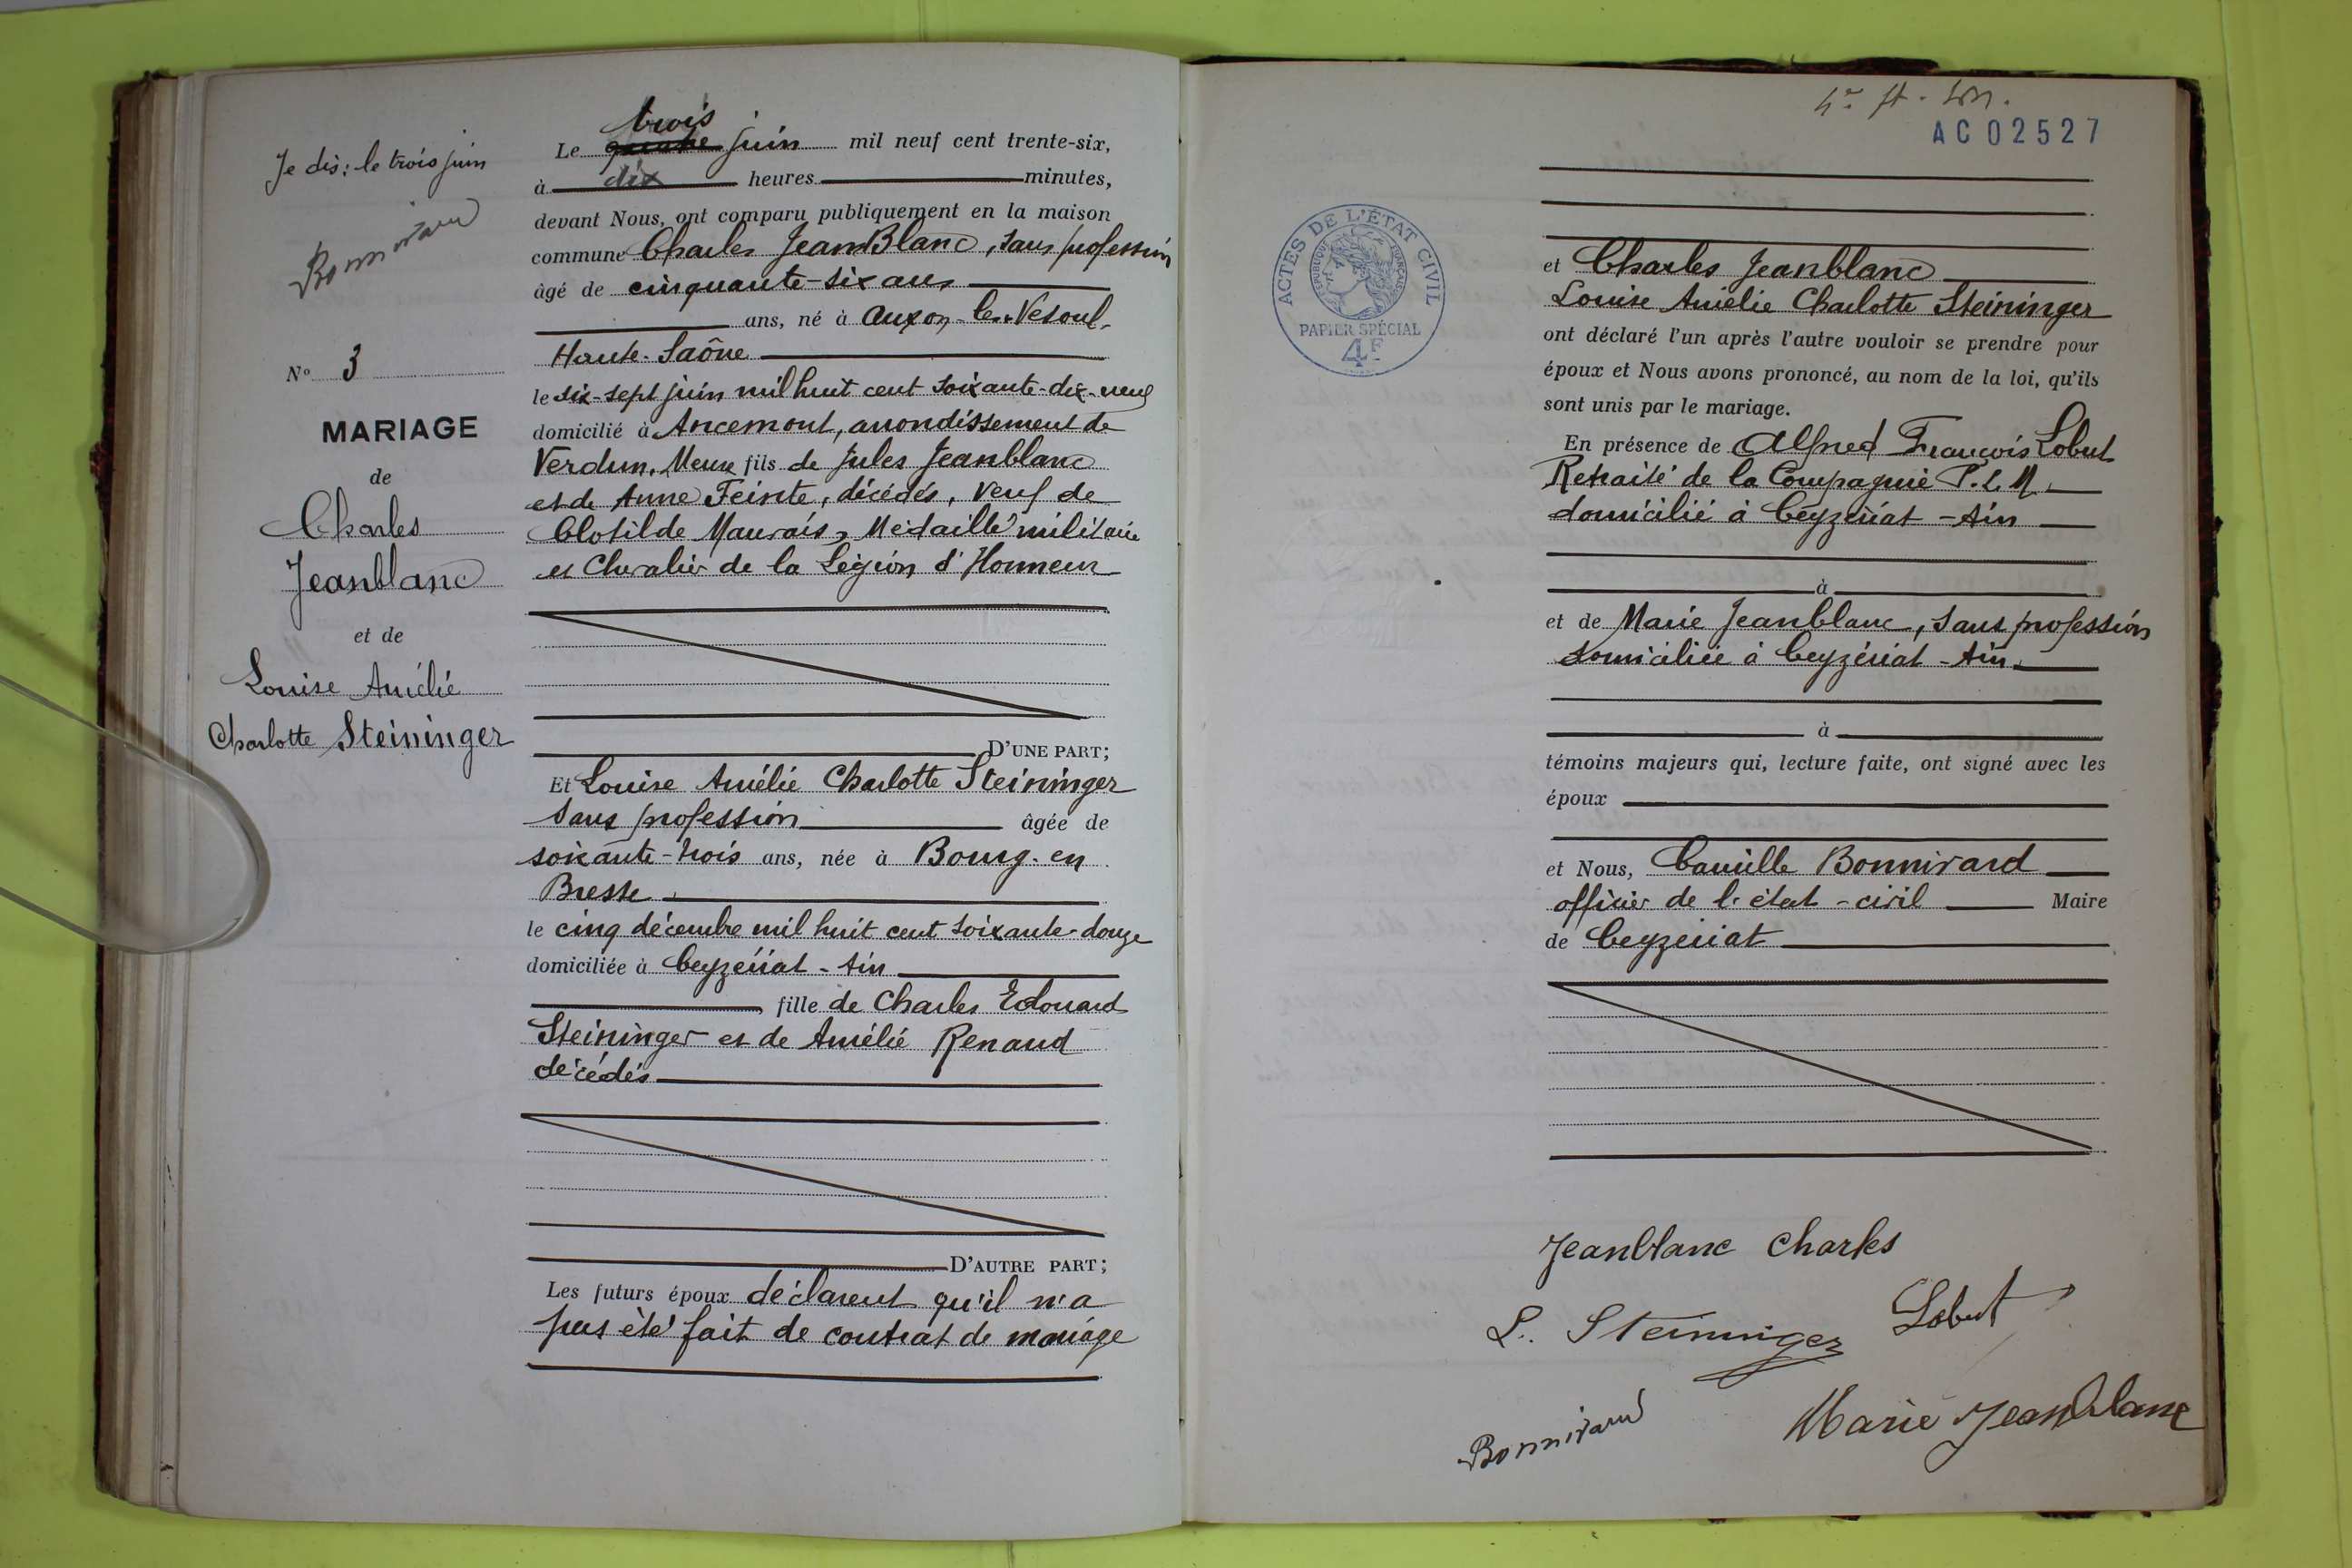 Je dis : le trois juin
Bonnivard
N° 3
MARIAGE
de
Charles
Jeanblanc
et de
Louise Amélie
Charlotte Steininger
trois
Le quatre juin mil neuf cent trente-six,
à dix heures minutes,
devant Nous, ont comparu publiquement en la maison
commune Charles JeanBlanc, sans profession
âgé de cinquante-six ans
ans, né à Auxon-les-Vesoul
Haute-Saône
le dix-sept juin mil huit cent soixante-dix-neuf
domicilié à Ancemont, arrondissement de
Verdun, Meuse fils de Jules Jeanblanc
et de Anne Feinte, décédés, veuf de
Clotilde Mauvais, Médaillé militaire
et Chevalier de la Légion d'Honneur
D'UNE PART;
Et Louise Amélie Charlotte Steininger
sans profession âgée de
soixante-trois ans, née à Bourg-en
Bresse
le cinq décembre mil huit cent soixante-douze
domiciliée à Ceyzériat - Ain
fille de Charles Edouard
Steininger et de Amélie Renaud
décédés
D'AUTRE PART;
Les futurs époux déclarent qu'il n'a
pas été fait de contrat de mariage
AC 02527
ACTES DE L'ÉTAT CIVIL
RÉPUBLIQUE FRANÇAISE
PAPIER SPÉCIAL
4F
et Charles Jeanblanc
Louise Amélie Charlotte Steininger
ont déclaré l'un après l'autre vouloir se prendre pour
époux et Nous avons prononcé, au nom de la loi, qu'ils
sont unis par le mariage.
En présence de Alfred François Lobut
Retraité de la Compagnie P.L.M.
domicilié à Ceyzériat - Ain
à
et de Marie Jeanblanc, sans profession
domiciliée à Ceyzériat - Ain
à
témoins majeurs qui, lecture faite, ont signé avec les
époux
et Nous, Camille Bonnivard
officier de l'état-civil Maire
de Ceyzériat
Jeanblanc Charles
L. Steininger
Lobut
Bonnivard
Marie Jeanblanc